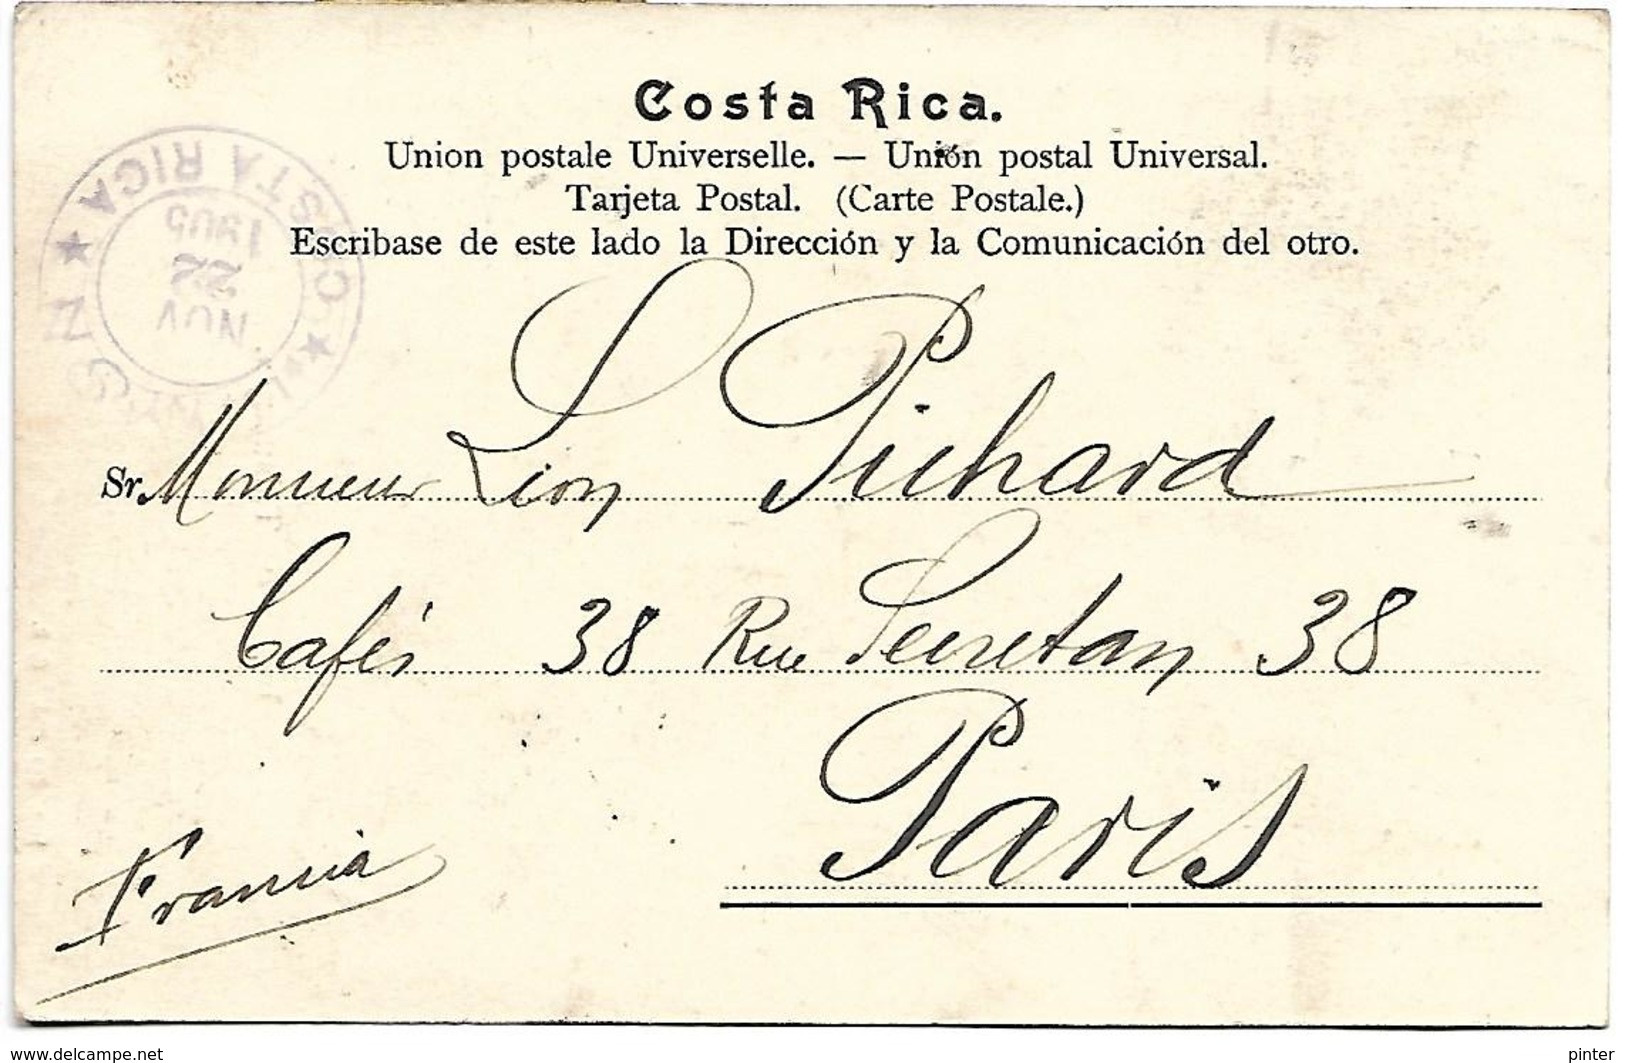 Costa Rica.
Union postale Universelle. — Unión postal Universal.
Tarjeta Postal. (Carte Postale.)
Escribase de este lado la Dirección y la Comunicación del otro.
COSTA RICA
NOV
22
1905
Sr. Monsieur Léon Pichard
Cafés 38 Rue Secretan 38
Paris
Francia
www.delcampe.net
pinter